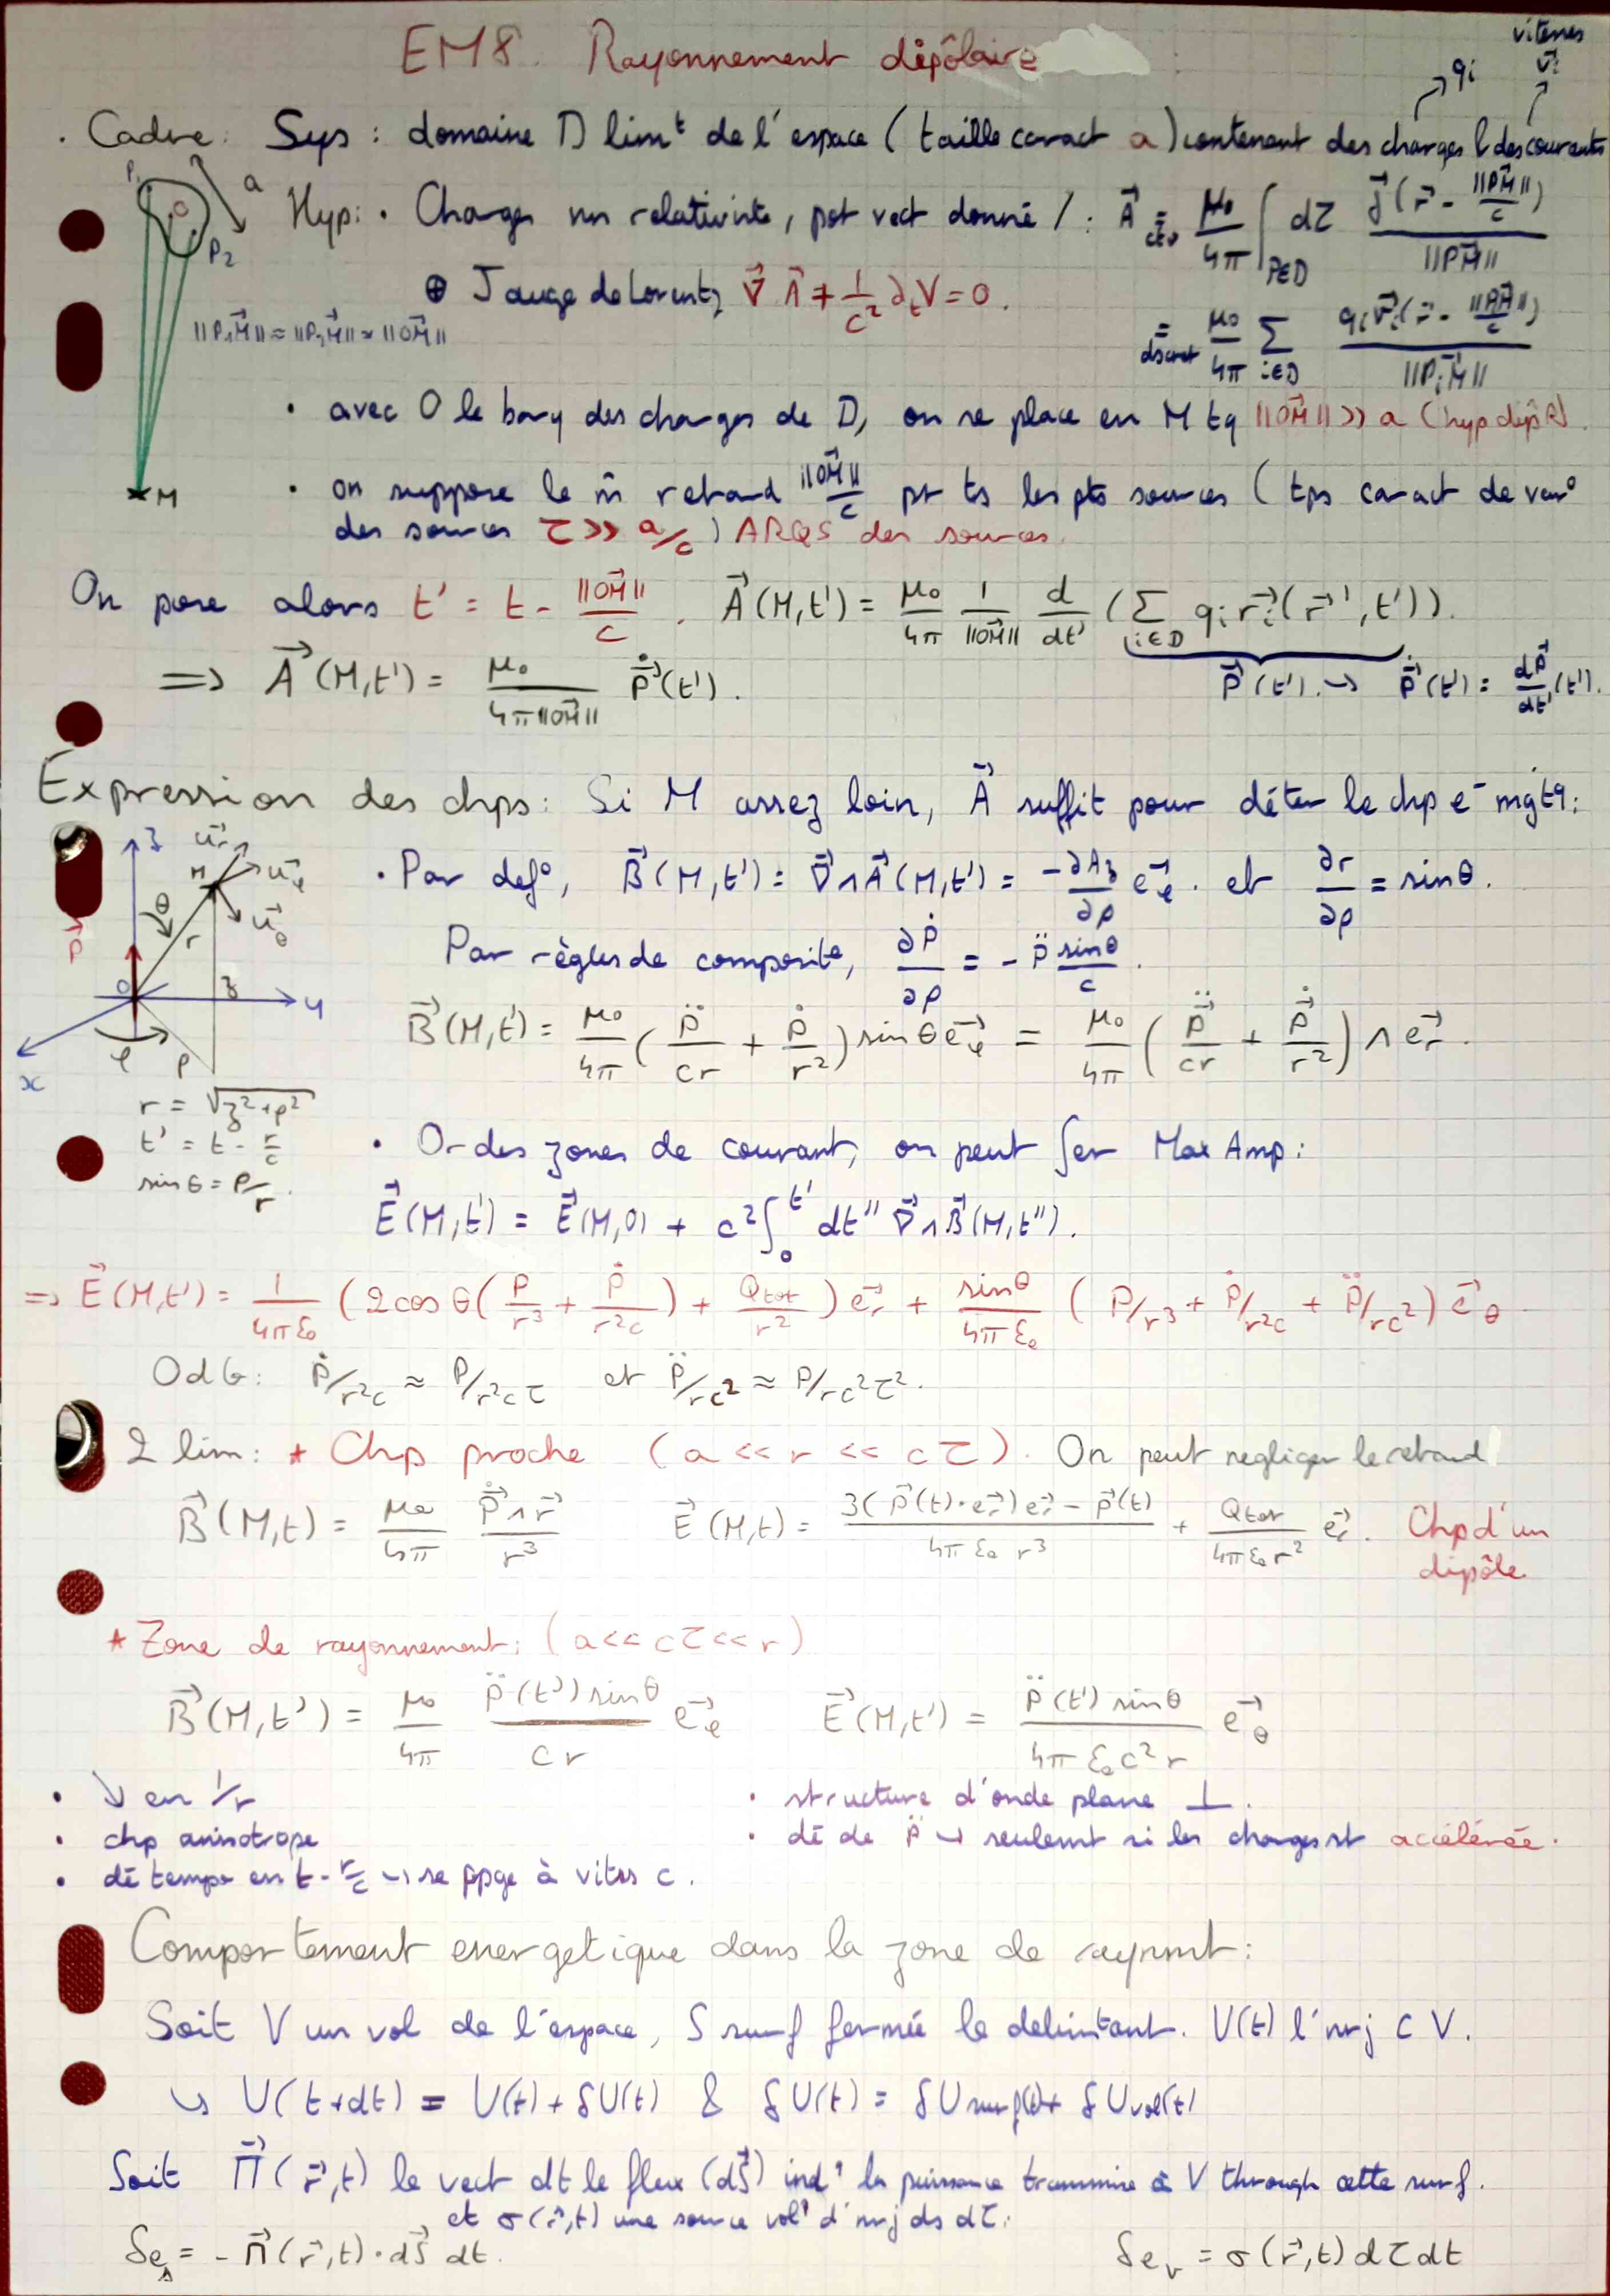 EM8. Rayonnement dipôlaire
vitesses
qi v⃗i
. Cadre: Sys : domaine D limᵗ de l'espace (taille caract a) contenant des charges & des courants
P₁ a
P₂
Hyp: • Charges non relativiste, pot vect donné / : A⃗ = μ₀/4π ∫_{P∈D} dτ j⃗(r⃗ - ||PM⃗||/c) / ||PM⃗||
⊕ Jauge de Lorentz ∇⃗ A⃗ + 1/c² ∂ₜV = 0.
||P₁M⃗|| ≈ ||P₂M⃗|| ≈ ||OM⃗||
= discret μ₀/4π Σ_{i∈D} qᵢv⃗ᵢ( - ||PM⃗||/c) / ||PᵢM⃗||
• avec O le bary des charges de D, on se place en M tq ||OM⃗|| >> a (hyp dipôl).
M
• on suppose le m̂ retard ||OM⃗||/c pr ts les pts sources (tps caract de var°
des sources τ >> a/c) ARQS des sources.
On pose alors t' = t - ||OM⃗||/c . A⃗(M,t') = μ₀/4π 1/||OM⃗|| d/dt' (Σ_{i∈D} qᵢ r⃗ᵢ(r⃗', t')).
=> A⃗(M,t') = μ₀/4π||OM⃗|| ṗ⃗(t').
p⃗(t') → ṗ⃗(t') = dp⃗/dt'(t').
Expression des chps: Si M assez loin, A⃗ suffit pour déter le chp e⁻ mgtq:
z u⃗r M u⃗φ θ r u⃗θ p⃗ O z y φ ρ x
• Par def°, B⃗(M,t') = ∇⃗∧A⃗(M,t') = -∂A_z/∂ρ e⃗φ . et ∂r/∂ρ = sinθ.
Par règles de composite, ∂ṗ/∂ρ = - p̈ sinθ/c .
B⃗(M,t') = μ₀/4π (p̈/cr + ṗ/r²) sinθ e⃗φ = μ₀/4π (p̈⃗/cr + ṗ⃗/r²) ∧ e⃗r .
r = √z²+ρ²
t' = t - r/c
sinθ = ρ/r .
• Or des zones de courant, on peut ∫er Max Amp:
E⃗(M,t') = E⃗(M,0) + c² ∫₀^t' dt'' ∇⃗∧B⃗(M,t'').
=> E⃗(M,t') = 1/4πε₀ (2cosθ(p/r³ + ṗ/r²c) + Qtot/r²) e⃗r + sinθ/4πε₀ (p/r³ + ṗ/r²c + p̈/rc²) e⃗θ
OdG: ṗ/r²c ≈ p/r²cτ et p̈/rc² ≈ p/rc²τ².
2 lim: * Chp proche (a << r << cτ). On peut negliger le retard
B⃗(M,t) = μ₀/4π ṗ⃗∧r⃗/r³ E⃗(M,t) = 3(p⃗(t)·e⃗r)e⃗r - p⃗(t) / 4πε₀ r³ + Qtot/4πε₀r² e⃗r . Chp d'un
dipôle
* Zone de rayonnement: (a << cτ << r)
B⃗(M,t') = μ₀/4π p̈(t') sinθ/cr e⃗φ E⃗(M,t') = p̈(t') sinθ/4πε₀c²r e⃗θ
• ↘ en 1/r
• structure d'onde plane ⊥.
• chp anisotrope
• dé de p̈ ↪ seulemt si les charges st accélérée.
• dé tempo en t - r/c ↪ se ppge à vites c.
Comportement energetique dans la zone de raynmt:
Soit V un vol de l'espace, S surf fermée le delimtant. U(t) l'nrj C V.
↪ U(t+dt) = U(t) + δU(t) & δU(t) = δUsurf(t) + δUvol(t)
Soit Π⃗(r⃗,t) le vect dt le flux (dS⃗) indᵗ la puissance transmise à V through cette surf.
et σ(r⃗,t) une source volᵗ d'nrj ds dτ:
δeₛ = - Π⃗(r⃗,t)·dS⃗ dt. δeᵥ = σ(r⃗,t) dτ dt